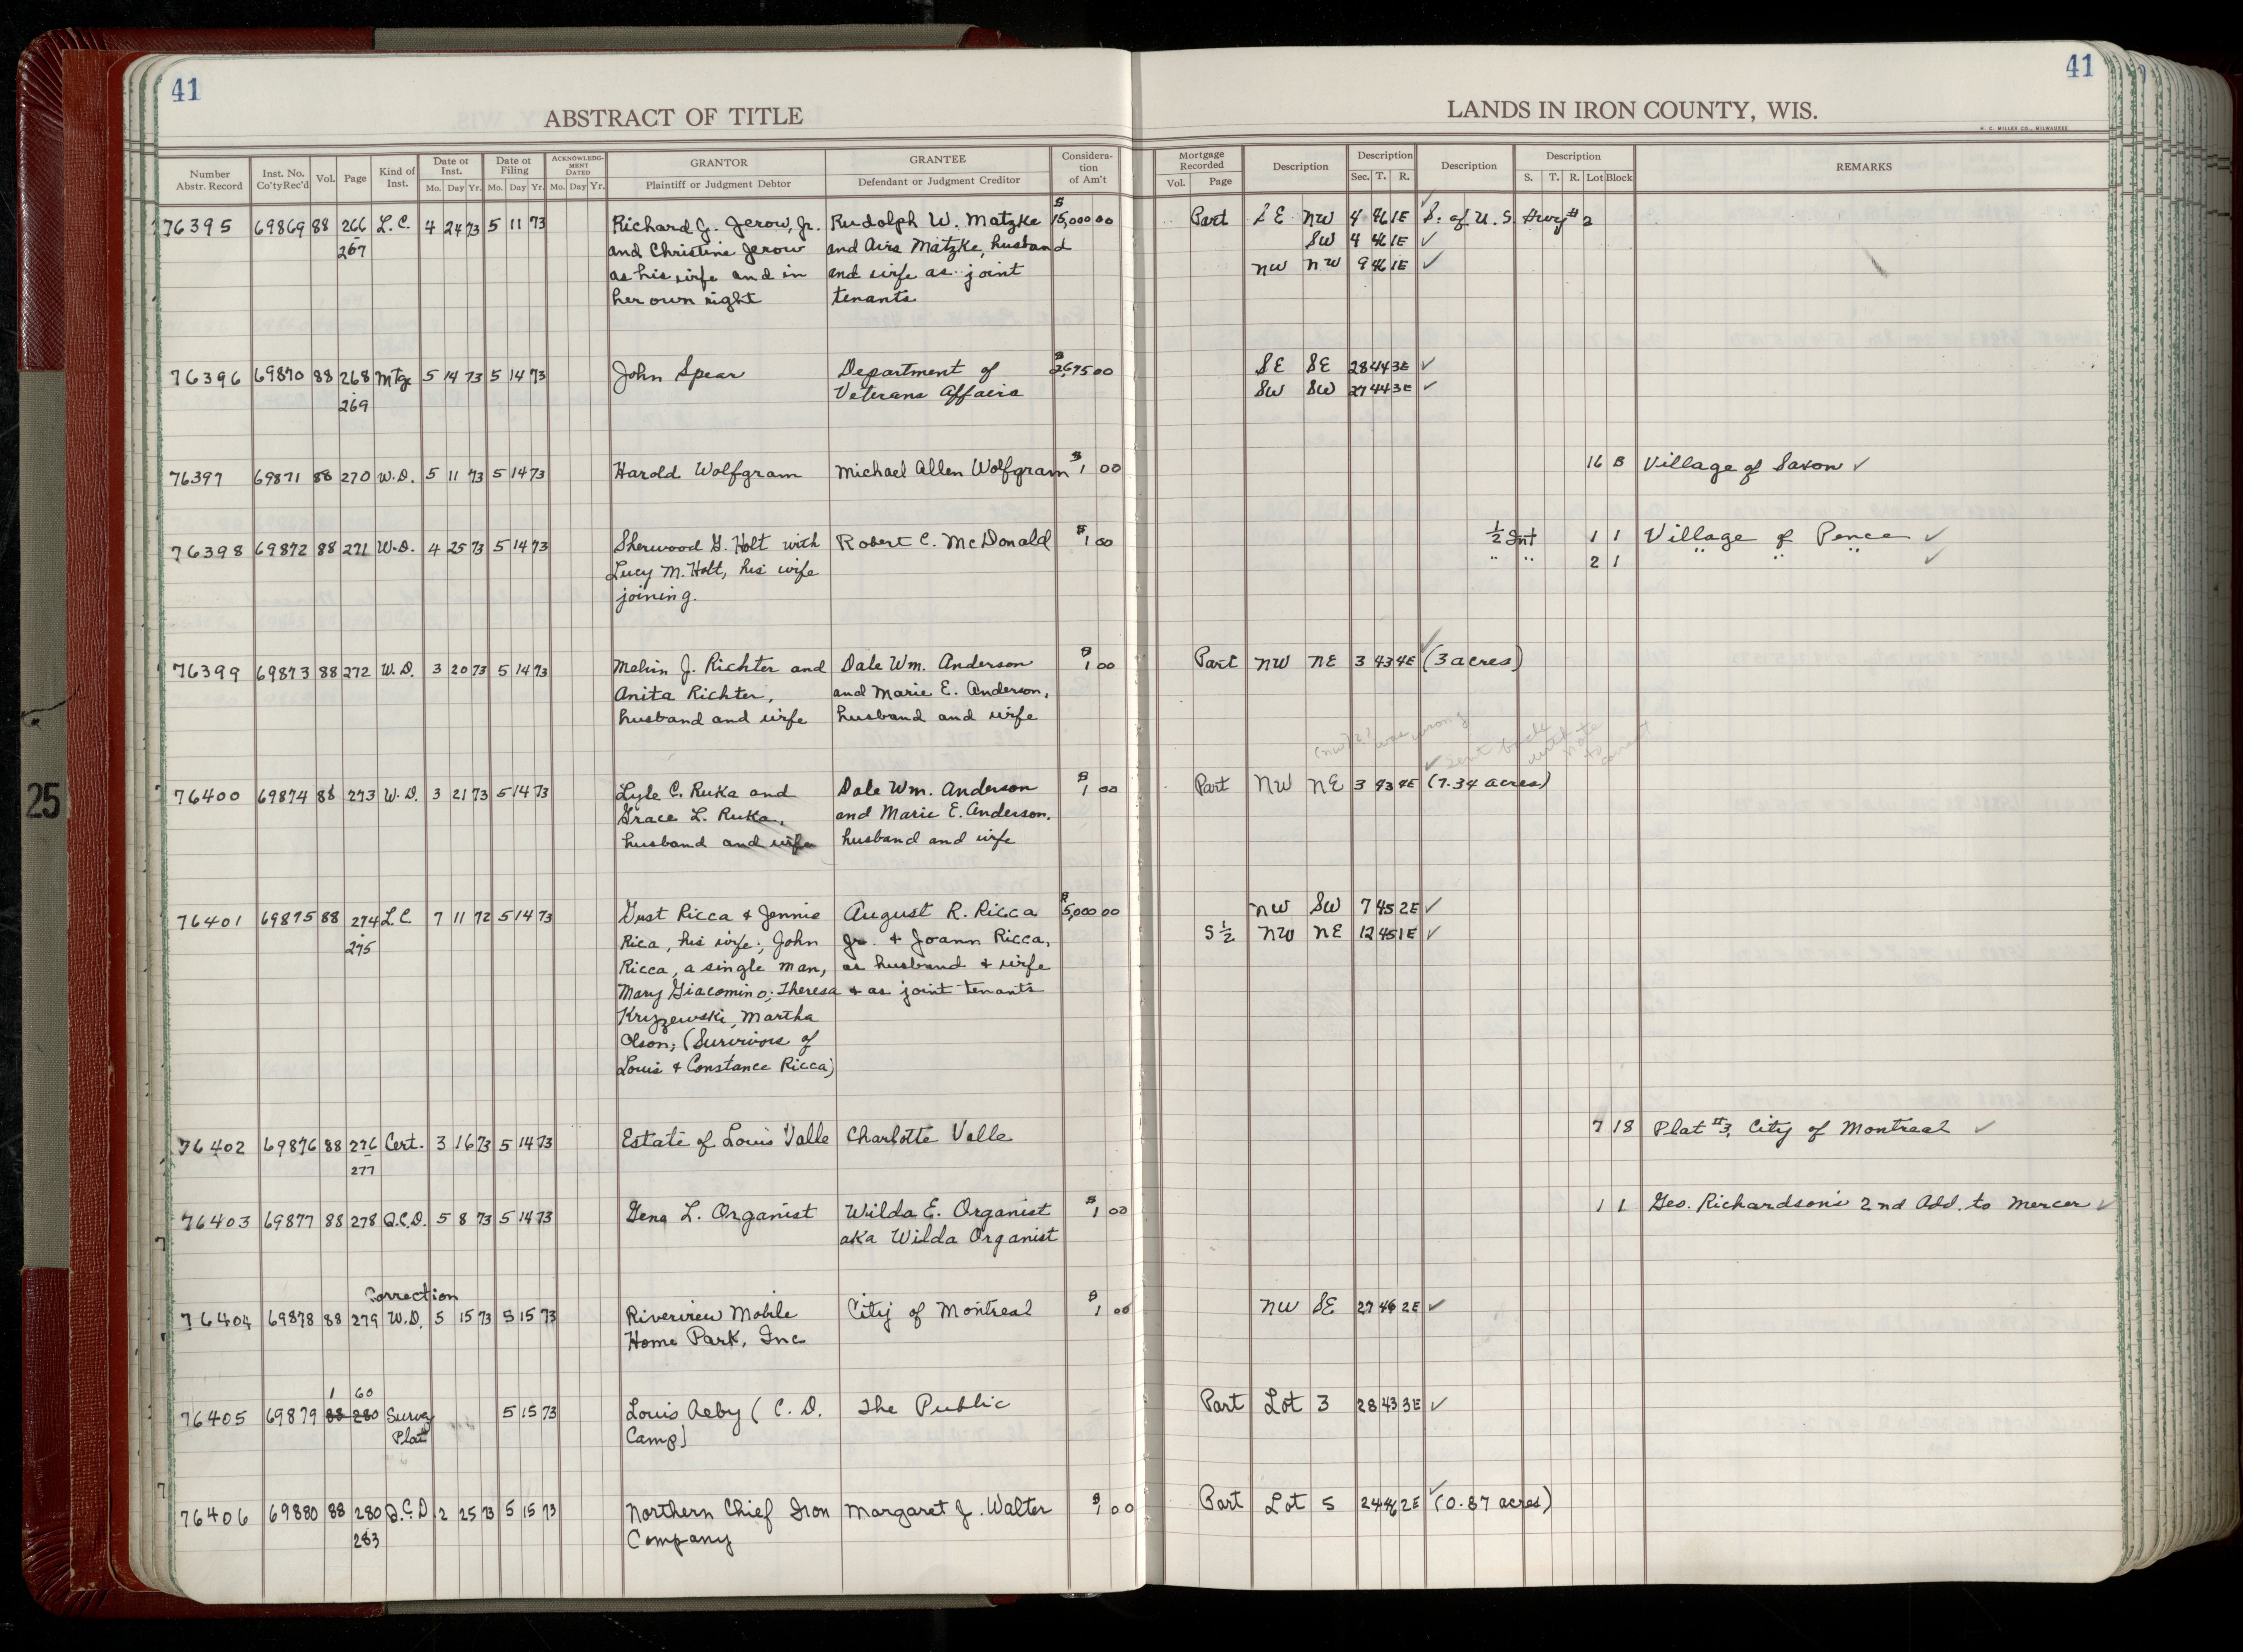 41
ABSTRACT OF TITLE
Number Abstr. Record Inst. No. Co'ty Rec'd Vol. Page Kind of Inst. Date of Inst. Mo. Day Yr. Date of Filing Mo. Day Yr. ACKNOWLEDGMENT DATED Mo. Day Yr. GRANTOR Plaintiff or Judgment Debtor GRANTEE Defendant or Judgment Creditor Consideration of Am't
41
LANDS IN IRON COUNTY, WIS.
H. C. MILLER CO., MILWAUKEE
Mortgage Recorded Vol. Page Description Description Sec. T. R. Description Description S. T. R. Lot Block REMARKS
76395 69869 88 266 L.C. 4 24 73 5 11 73 Richard J. Jerow, Jr. Rudolph W. Matzke $15,000 00 Part SE NW 4 46 1E S. of U.S. Hwy # 2
267 and Christine Jerow and Aira Matzke, husband SW 4 46 1E ✓
as his wife and in and wife as joint NW NW 9 46 1E ✓
her own right tenants
76396 69870 88 268 Mtge 5 14 73 5 14 73 John Spear Department of 00 SE SE 28 44 3E ✓
269 Veterans Affairs SW SW 27 44 3E ✓
76397 69871 88 270 W.D. 5 11 73 5 14 73 Harold Wolfgram Michael Allen Wolfgram $1 00 16 B Village of Saxon ✓
76398 69872 88 271 W.D. 4 25 73 5 14 73 Sherwood G. Holt with Robert C. McDonald $1 00 ½ Int 1 1 Village of Pence ✓
Lucy M. Holt, his wife " " 2 1 " " " ✓
joining.
76399 69873 88 272 W.D. 3 20 73 5 14 73 Melvin J. Richter and Dale Wm. Anderson $1 00 Part NW NE 3 43 4E ✓ (3 acres)
Anita Richter, and Marie E. Anderson,
husband and wife husband and wife
was wrong
✓ sent back with note to correct
76400 69874 88 273 W.D. 3 21 73 5 14 73 Lyle C. Ruka and Dale Wm. Anderson $1 00 Part NW NE 3 43 4E (7.34 acres)
Grace L. Ruka, and Marie E. Anderson.
husband and wife husband and wife
76401 69875 88 274 L.C. 7 11 72 5 14 73 Gust Ricca & Jennie August R. Ricca $5,000 00 NW SW 7 45 2E ✓
275 Rica, his wife; John Jr. & Joann Ricca, S ½ NW NE 12 45 1E ✓
Ricca, a single man, as husband & wife
Mary Giacomino; Theresa & as joint tenants
Kryzzewski, Martha
Olson; (Survivors of
Louis & Constance Ricca)
76402 69876 88 276 Cert. 3 16 73 5 14 73 Estate of Louis Valle Charlotte Valle 7 18 Plat #3, City of Montreal ✓
277
76403 69877 88 278 Q.C.D. 5 8 73 5 14 73 Gene L. Organist Wilda E. Organist $1 00 1 1 Geo. Richardson's 2nd Add. to Mercer ✓
aka Wilda Organist
Correction
76404 69878 88 279 W.D. 5 15 73 5 15 73 Riverview Mobile City of Montreal $1 00 NW SE 27 46 2E ✓
Home Park, Inc
1 60
76405 69879 88 280 Survey 5 15 73 Louis Aeby (C. D. The Public Part Lot 3 28 43 3E ✓
Plat Camp)
76406 69880 88 280 Q.C.D. 2 25 73 5 15 73 Northern Chief Iron Margaret J. Walter $1 00 Part Lot 5 24 46 2E ✓ (0.87 acres)
283 Company
25